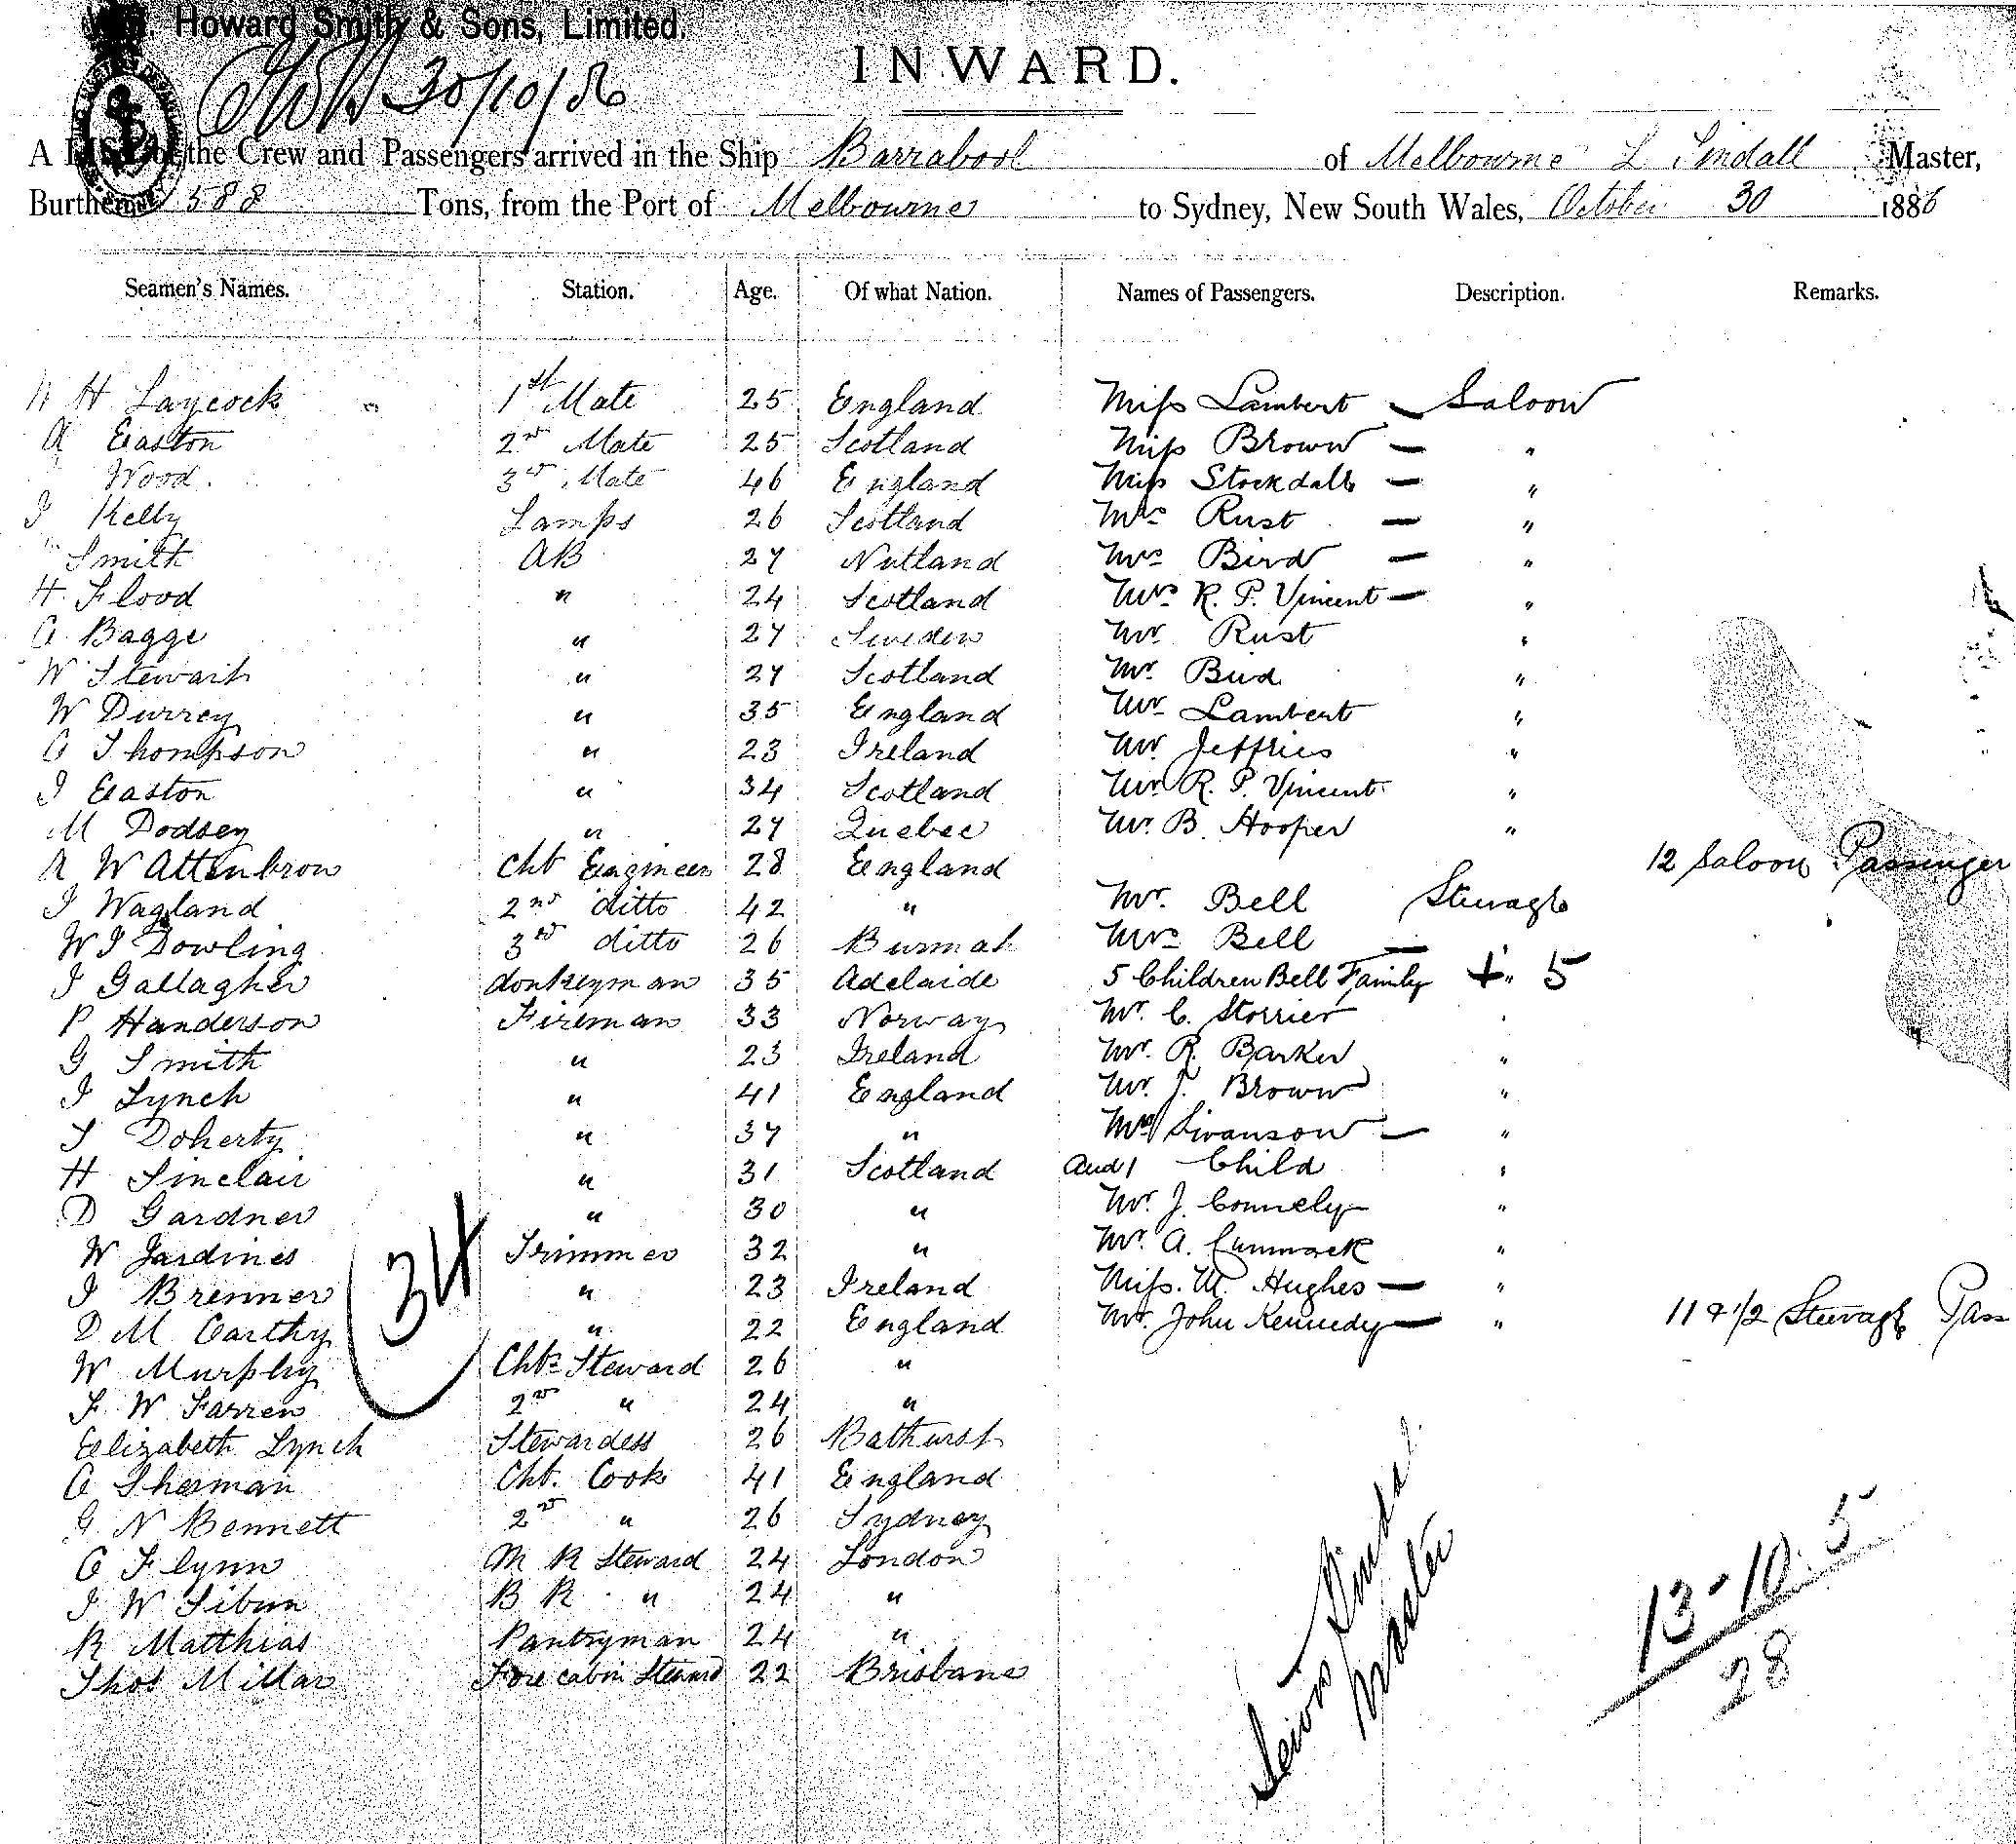 Wm. Howard Smith & Sons, Limited.
30/10/86
INWARD.
A List of the Crew and Passengers arrived in the Ship Barrabool of Melbourne L Sindall Master,
Burthen 588 Tons, from the Port of Melbourne to Sydney, New South Wales, October 30 1886
Seamen's Names. Station. Age. Of what Nation. Names of Passengers. Description. Remarks.
H Laycock 1st Mate 25 England Miss Lambert — Saloon
A Easton 2nd Mate 25 Scotland Miss Brown — "
Wood 3rd Mate 46 England Miss Stockdale — "
J Kelly Lamps 26 Scotland Mrs Rust — "
Smith AB 27 Mrs Bird — "
H Flood " 24 Scotland Mrs R. P. Vincent — "
A Bagge " 27 Sweden Mr Rust "
W Stewart " 27 Scotland Mr Bird "
W Durrey " 35 England Mr Lambert "
C Thompson " 23 Ireland Mr Jeffries "
J Easton " 34 Scotland Mr R. P. Vincent "
M Dodsey " 27 Quebec Mr B. Hooper "
12 Saloon Passenger
R W Attenbrow Chf Engineer 28 England
J Wagland 2nd ditto 42 " Mr. Bell Steerage
W J Dowling 3rd ditto 26 Burmah Mrs Bell —
J Gallagher donkeyman 35 Adelaide 5 Children Bell Family + " 5
P Handerson Fireman 33 Norway Mr. C. Storrier "
G Smith " 23 Ireland Mr. R. Barker "
J Lynch " 41 England Mr. J. Brown "
J Doherty " 37 " Mrs Swanson — "
H Sinclair " 31 Scotland and 1 Child "
D Gardner " 30 " Mr. J. Connely "
W Jardines Trimmer 32 " Mr. A. Cummack "
J Brenner " 23 Ireland Miss. M. Hughes — "
D M Carthy " 22 England Mr. John Kennedy — " 11 & 1/2 Steerage Pass
34
W Murphy Chf Steward 26 "
F W Farren 2nd " 24 "
Elizabeth Lynch Stewardess 26 Bathurst
C Sherman Chf. Cook 41 England
G N Bennett 2nd " 26 Sydney
C Flynn M R Steward 24 London
J W Sibun B R " 24 "
R Matthias Pantryman 24 "
Thos Millar Fore cabin Steward 22 Brisbane
Sindall
Master
13-10.5
28